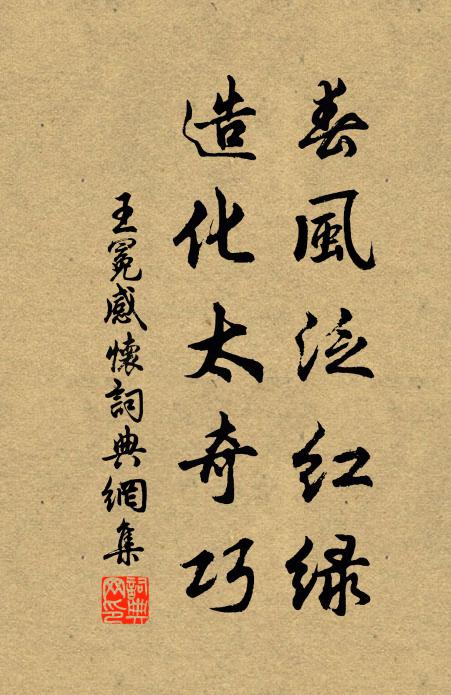 春風泛红緑
造化太奇巧
王冕感懷詞典網集
詞典網印